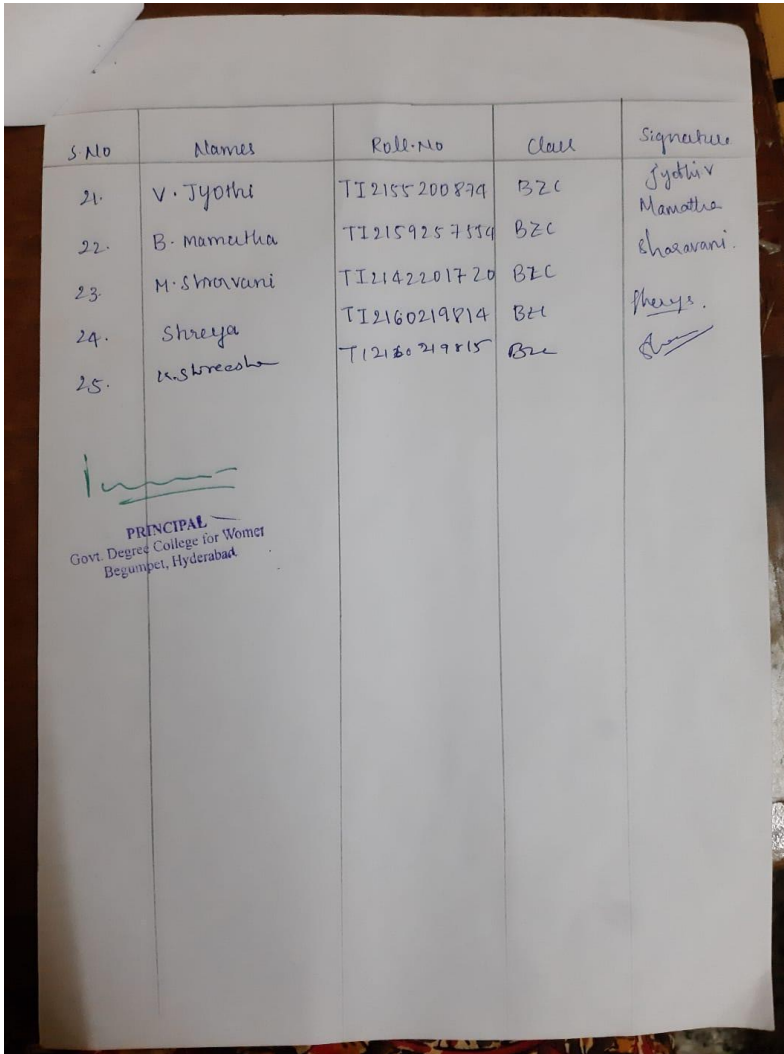 S.No Names Roll.No Class Signature
21. V. Jyothi TI2155200874 BZC Jyothi V
22. B. Mamatha TI2159257554 BZC Mamatha
23. M. Shravani TI2142201720 BZC Sharavani.
24. Shreya TI2160219814 BZC
25. K. Shreesha BZC
PRINCIPAL
Govt. Degree College for Women
Begumpet, Hyderabad